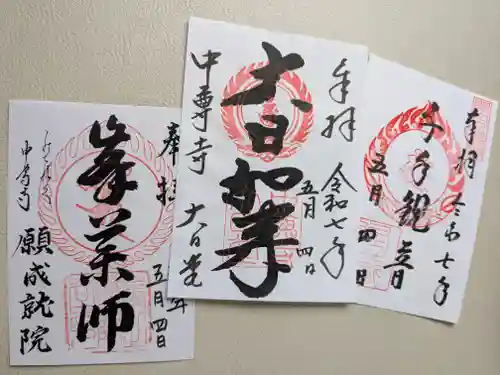 奉拝
峯薬師
五月四日
願成就院
奉拝
令和七年
五月四日
大日如来
中尊寺
大日堂
奉拝
令和七年
千手観音
五月四日